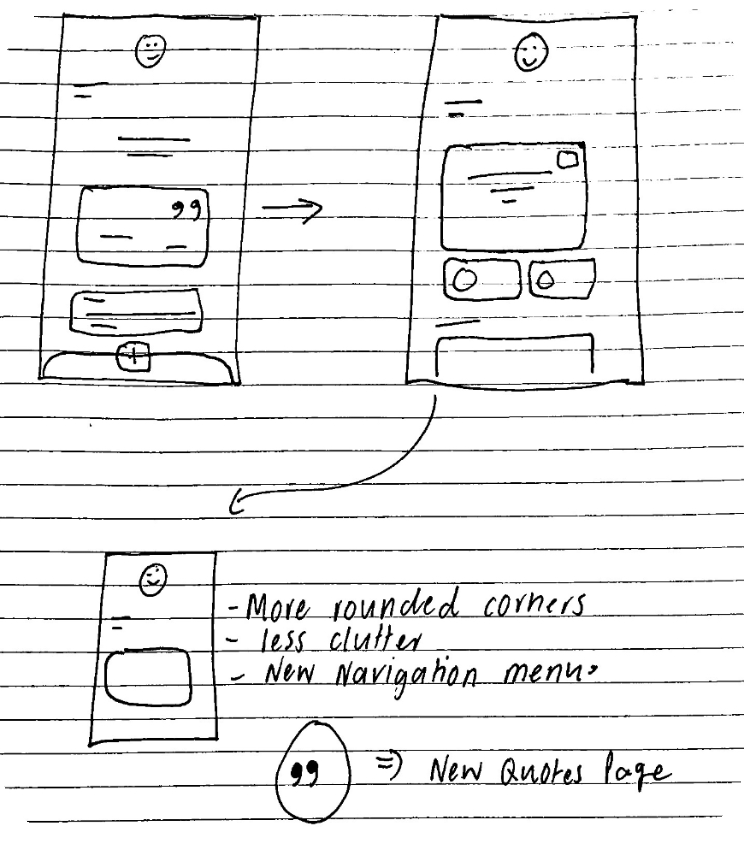 99
- More rounded corners
- less clutter
- New Navigation menu.
99 => New Quotes Page